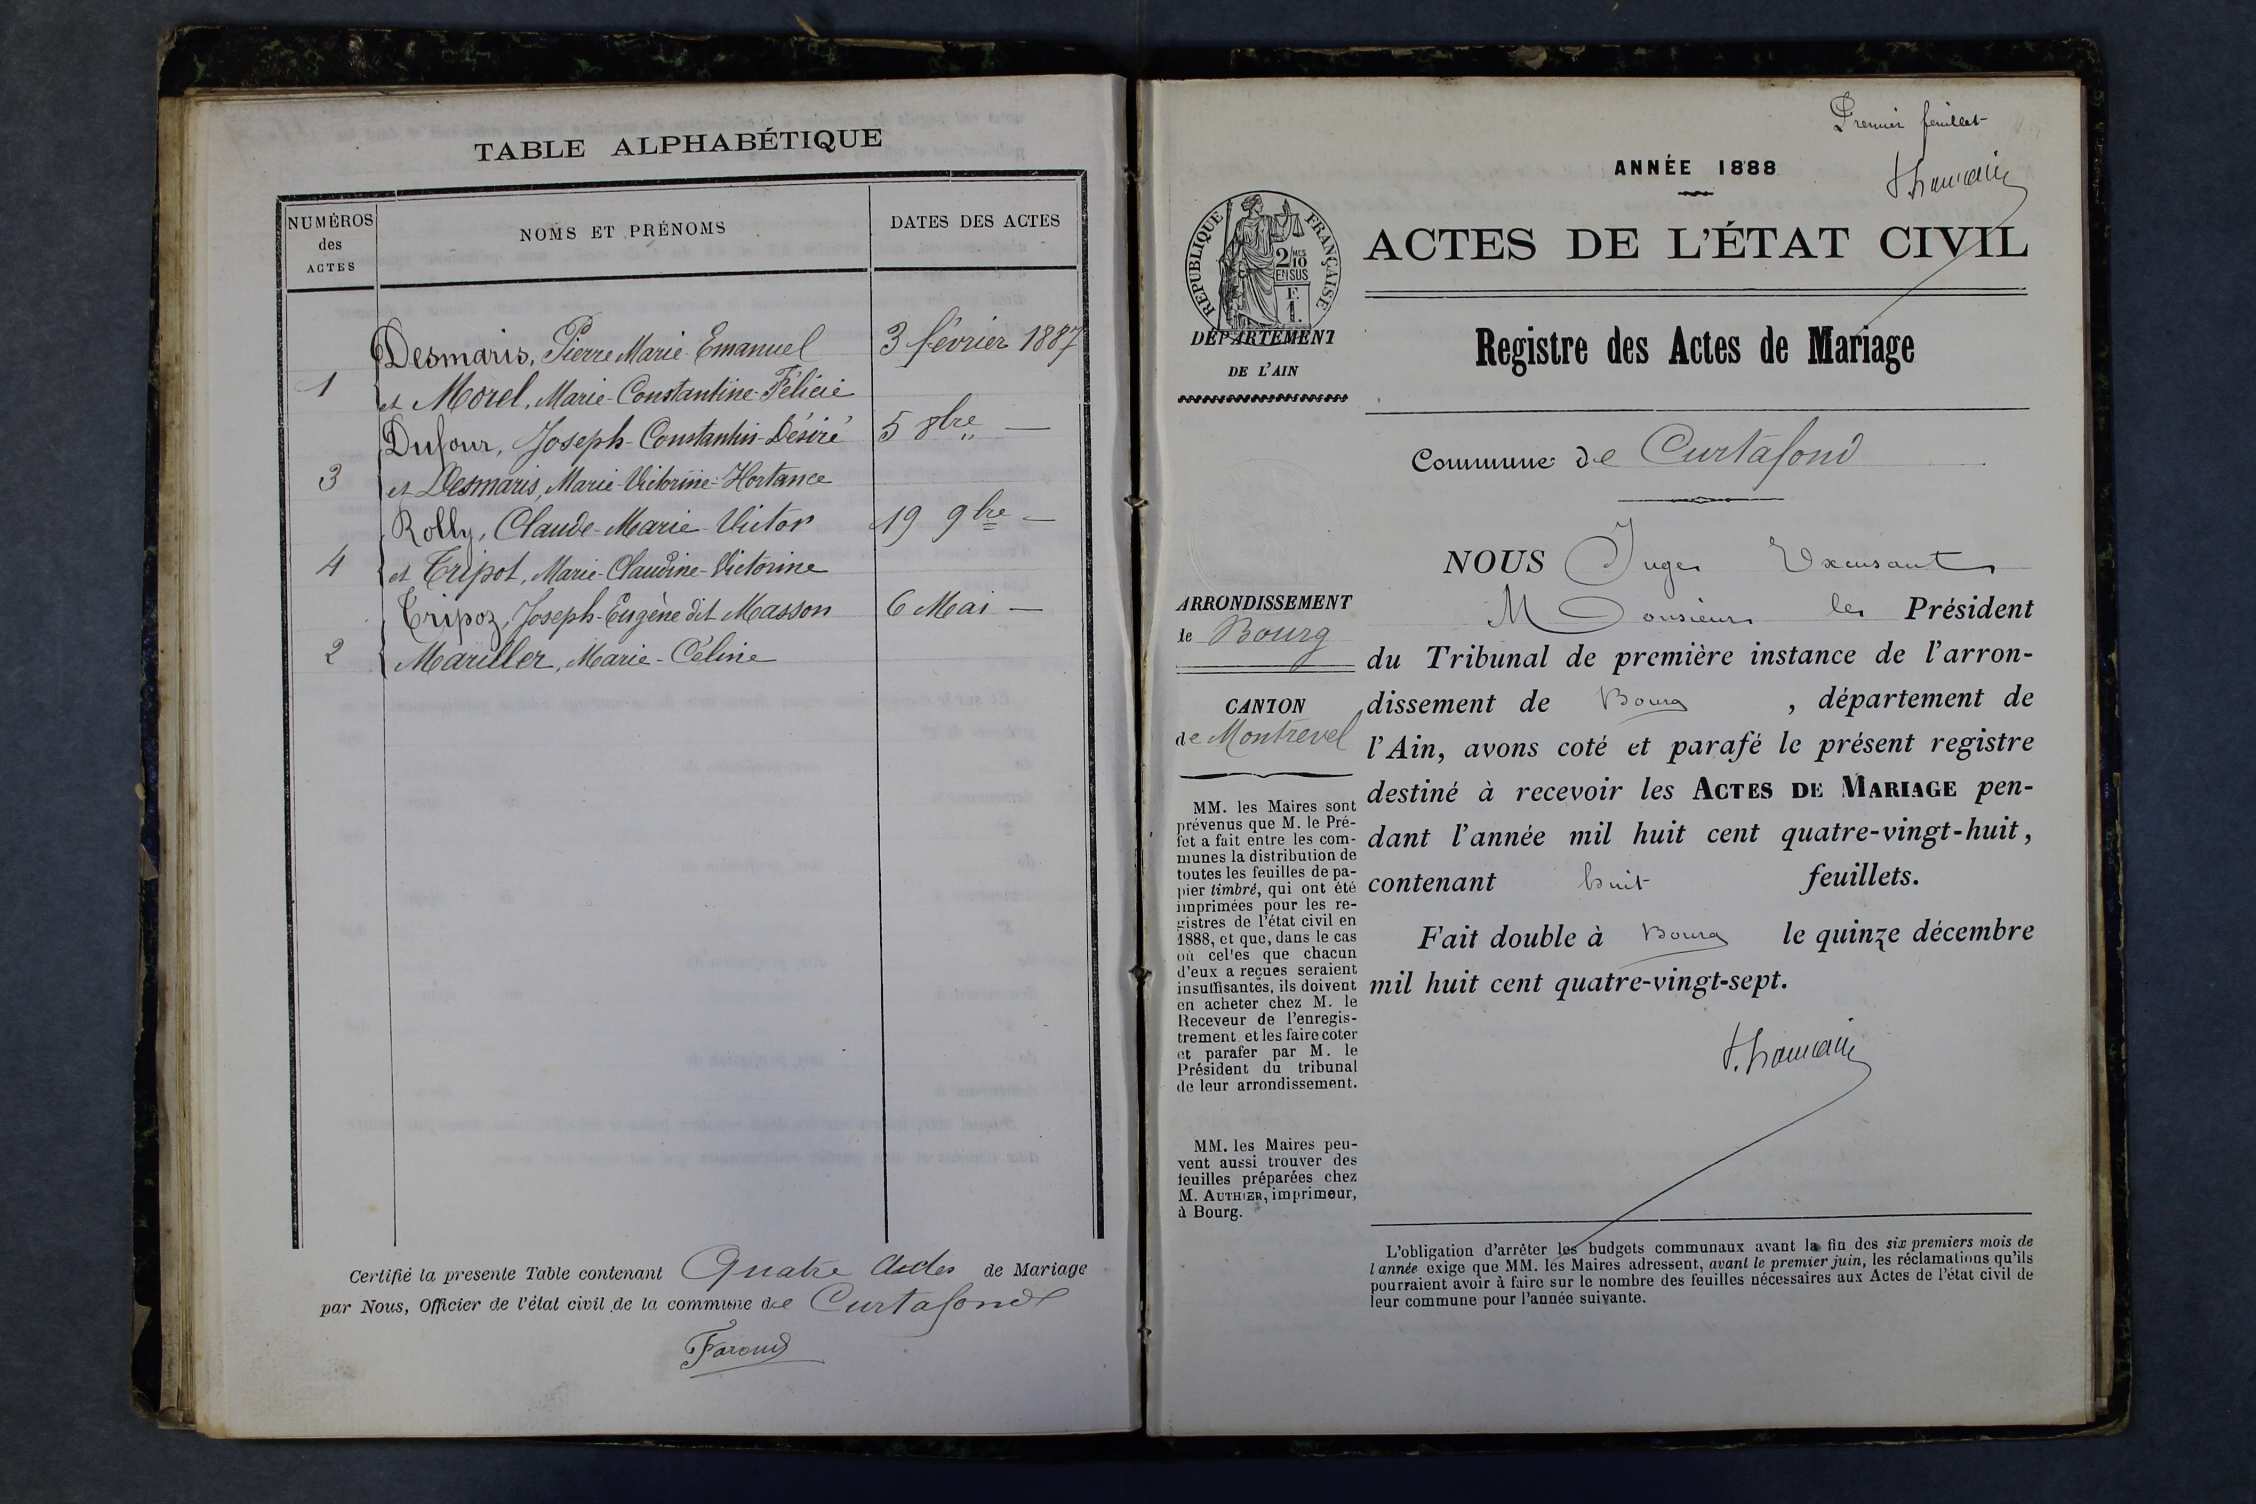 TABLE ALPHABÉTIQUE
NUMÉROS
des
ACTES
NOMS ET PRÉNOMS
DATES DES ACTES
Desmaris, Pierre Marie Emanuel
3 février 1887
1
et Morel, Marie-Constantine-Félicie
Dufour, Joseph-Constantin-Désiré
5 8bre —
3
et Desmaris, Marie-Victorine-Hortance
Rolly, Claude-Marie-Victor
19 9bre —
4
et Tripot, Marie-Claudine-Victorine
Tripoz, Joseph-Eugène dit Masson
6 Mai —
2
Mariller, Marie-Céline
Certifié la presente Table contenant Quatre Actes de Mariage
par Nous, Officier de l'état civil de la commune de Curtafond
Premier feuillet
ANNÉE 1888
ACTES DE L'ÉTAT CIVIL
RÉPUBLIQUE FRANÇAISE
2/10MES
EN SUS
F.
1.
DÉPARTEMENT
DE L'AIN
Registre des Actes de Mariage
Commune de Curtafond
ARRONDISSEMENT
de Bourg
CANTON
de Montrevel
MM. les Maires sont
prévenus que M. le Pré-
fet a fait entre les com-
munes la distribution de
toutes les feuilles de pa-
pier timbré, qui ont été
imprimées pour les re-
gistres de l'état civil en
1888, et que, dans le cas
où cel'es que chacun
d'eux a reçues seraient
insuffisantes, ils doivent
en acheter chez M. le
Receveur de l'enregis-
trement et les faire coter
et parafer par M. le
Président du tribunal
de leur arrondissement.
MM. les Maires peu-
vent aussi trouver des
feuilles préparées chez
M. AUTHIER, imprimeur,
à Bourg.
NOUS Juge Excusant
Monsieur le Président
du Tribunal de première instance de l'arron-
dissement de Bourg, département de
l'Ain, avons coté et parafé le présent registre
destiné à recevoir les ACTES DE MARIAGE pen-
dant l'année mil huit cent quatre-vingt-huit,
contenant huit feuillets.
Fait double à Bourg le quinze décembre
mil huit cent quatre-vingt-sept.
L'obligation d'arrêter les budgets communaux avant la fin des six premiers mois de
l'année exige que MM. les Maires adressent, avant le premier juin, les réclamations qu'ils
pourraient avoir à faire sur le nombre des feuilles nécessaires aux Actes de l'état civil de
leur commune pour l'année suivante.